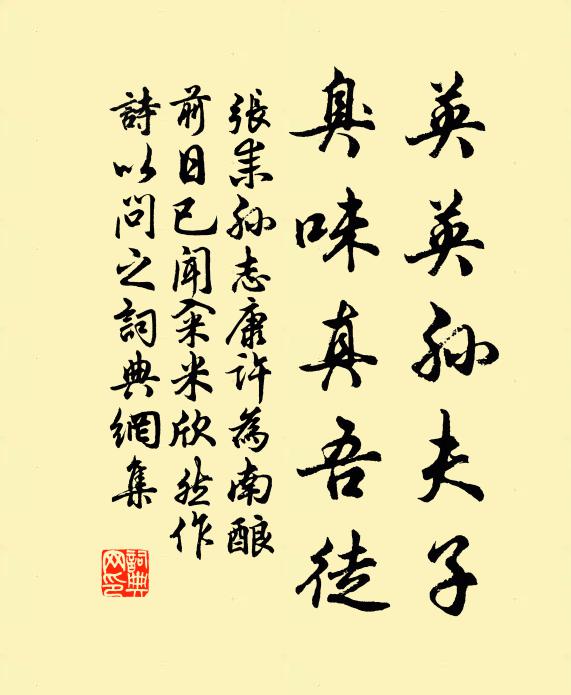 英英孙夫子
臭味真吾徒
張耒孙志康许為南酿
前日已闻籴米欣然作
詩以问之詞典網集
詞典网印